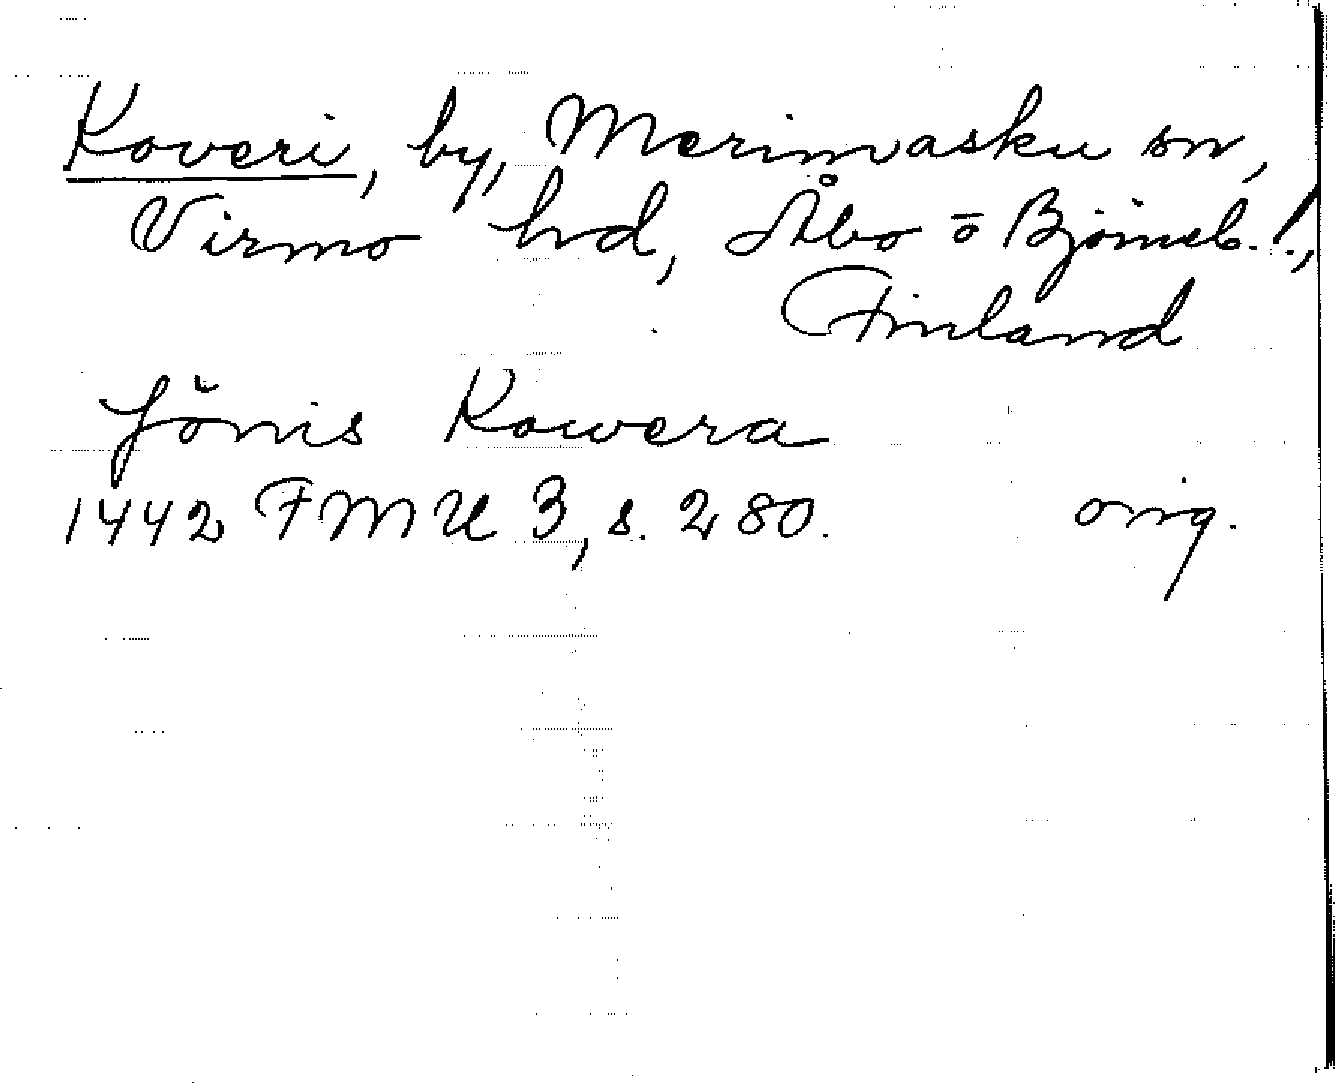 Koveri, by, Merimasku sn,
Virmo hd, Åbo o Björneb. l.,
Finland
Jönis Kowera
1442 FMU 3, s. 280. orig.